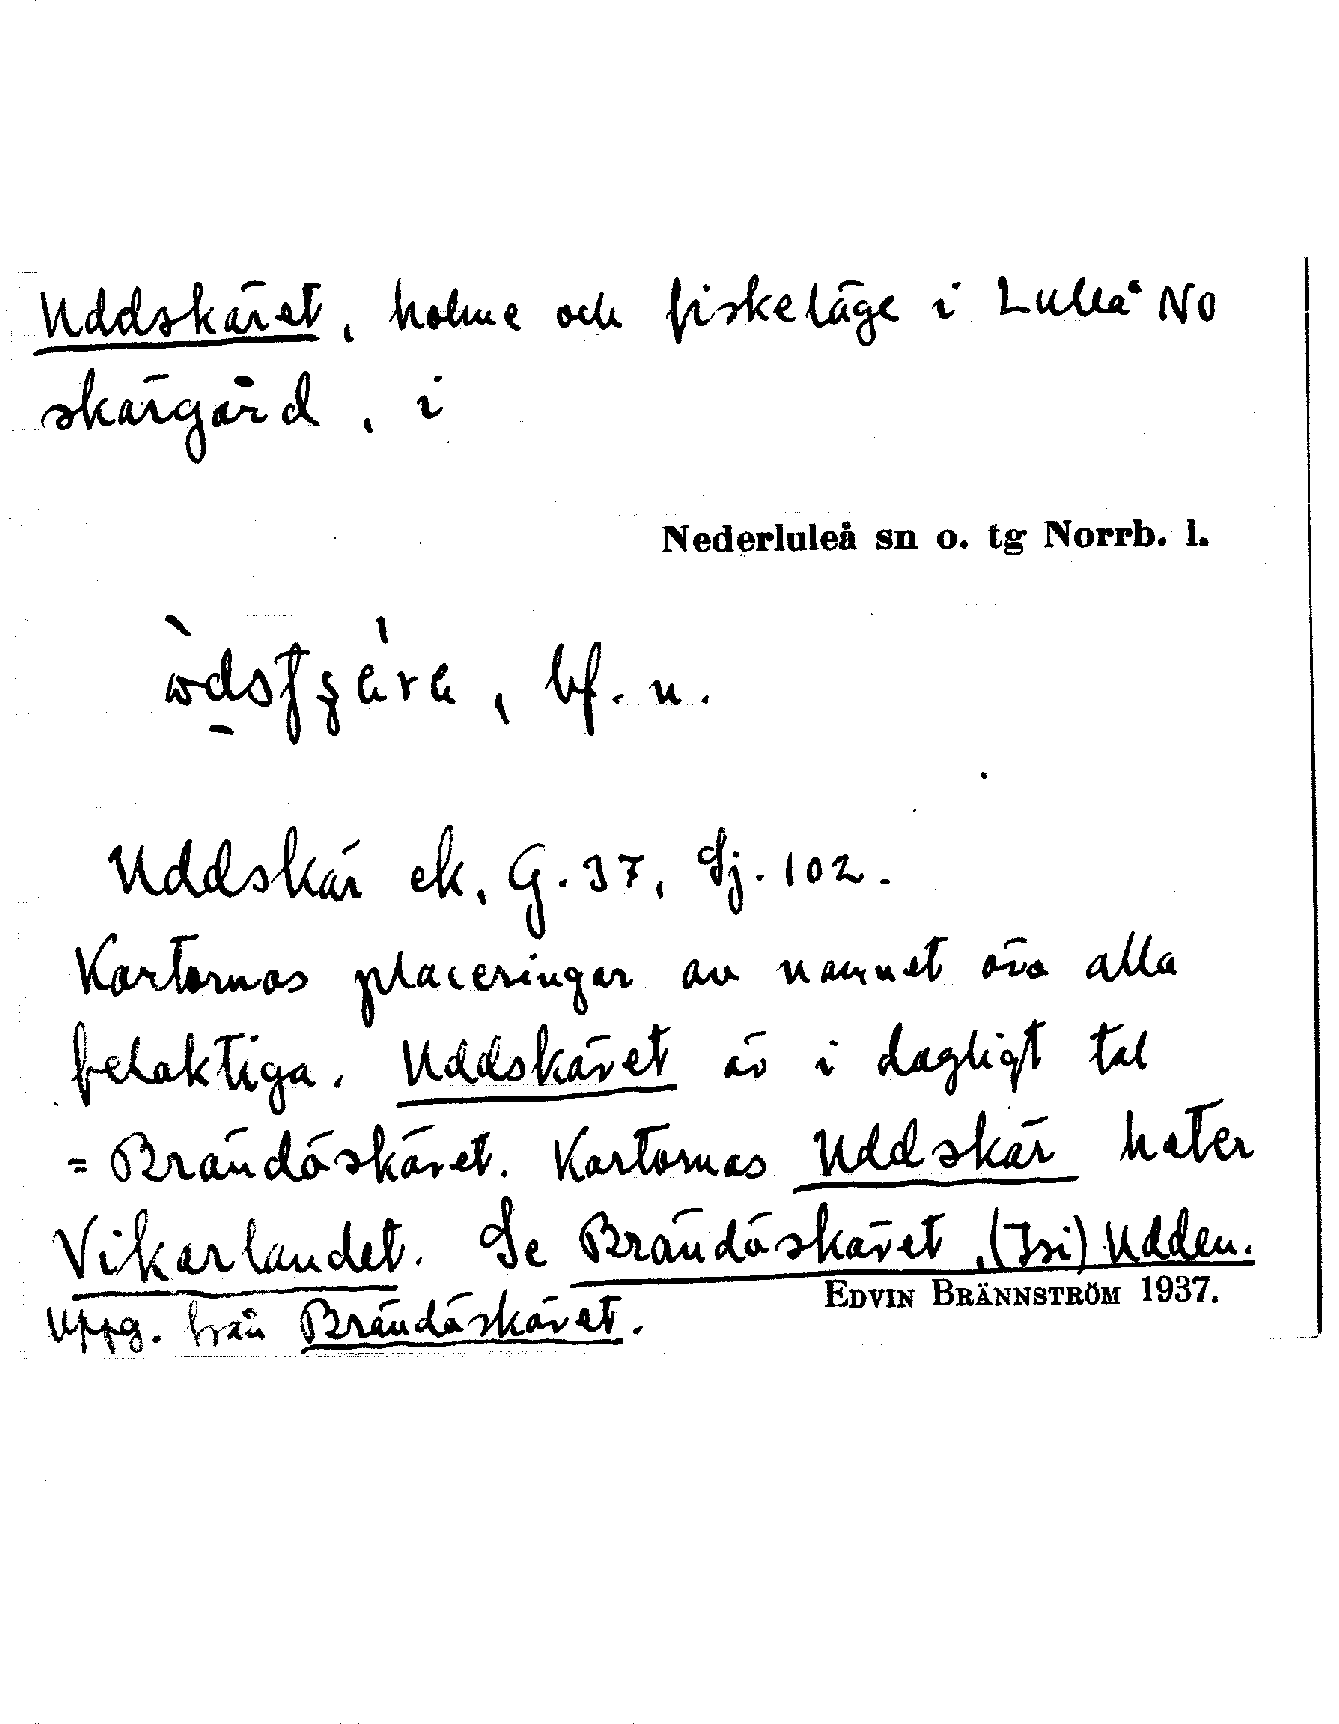 Uddskäret, holme och fiskeläge i Luleå NO
skärgård, i
Nederluleå sn o. tg Norrb. l.
bf. n.
Uddskär ek, G. 37, Sj. 102.
Kartornas placeringar av namnet äro alla
felaktiga. Uddskäret är i dagligt tal
= Brändöskäret. Kartornas Uddskär heter
Vikarlandet. Se Brändöskäret, (Isi) Udden.
EDVIN BRÄNNSTRÖM 1937.
Uppg. från Brändöskäret.